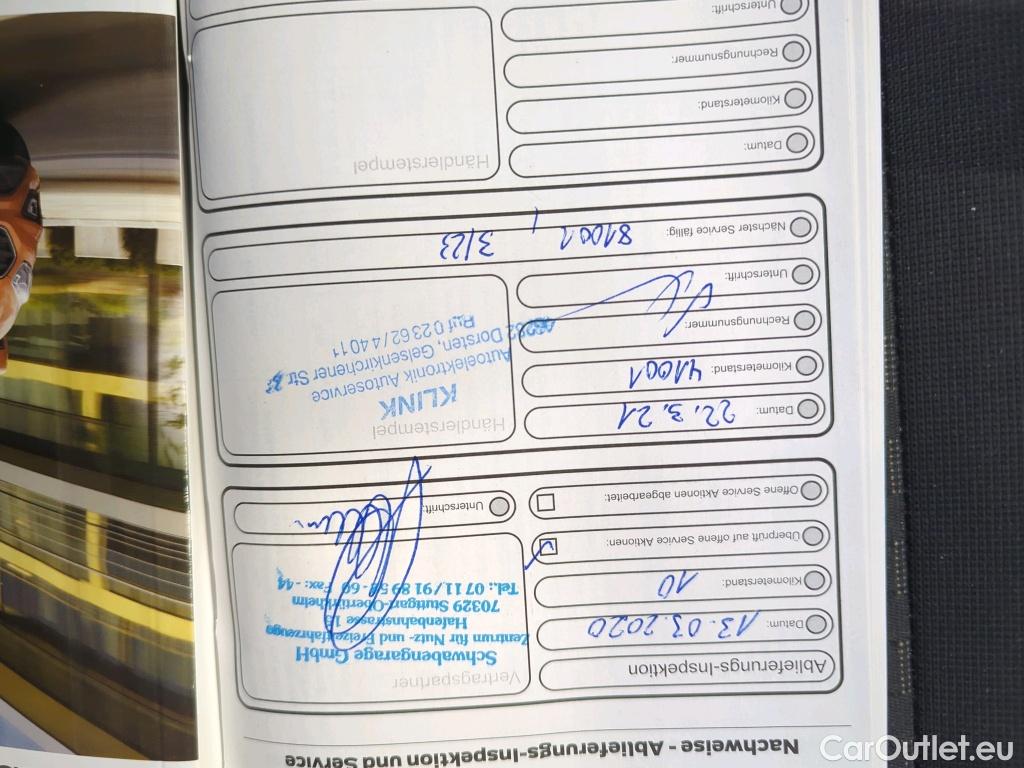 Nachweise - Ablieferungs-Inspektion und Service
Ablieferungs-Inspektion
Datum: 13.03.2020
Kilometerstand: 10
Überprüft auf offene Service Aktionen:
Offene Service Aktionen abgearbeitet:
Vertragspartner
Schwabengarage GmbH
Zentrum für Nutz- und Freizeitfahrzeuge
Hafenbahnstrasse
70329 Stuttgart-Obertürkheim
Tel.: 07 11/91 89 58 - 60 Fax: - 44
Unterschrift:
Datum: 22.3.21
Kilometerstand: 41001
Rechnungsnummer:
Unterschrift:
Nächster Service fällig: 81001 / 3/23
Händlerstempel
KLINK
Autoelektronik Autoservice
Dorsten, Gelsenkirchener Str
Ruf 02362/44011
Datum:
Kilometerstand:
Rechnungsnummer:
Unterschrift:
Händlerstempel
CarOutlet.eu